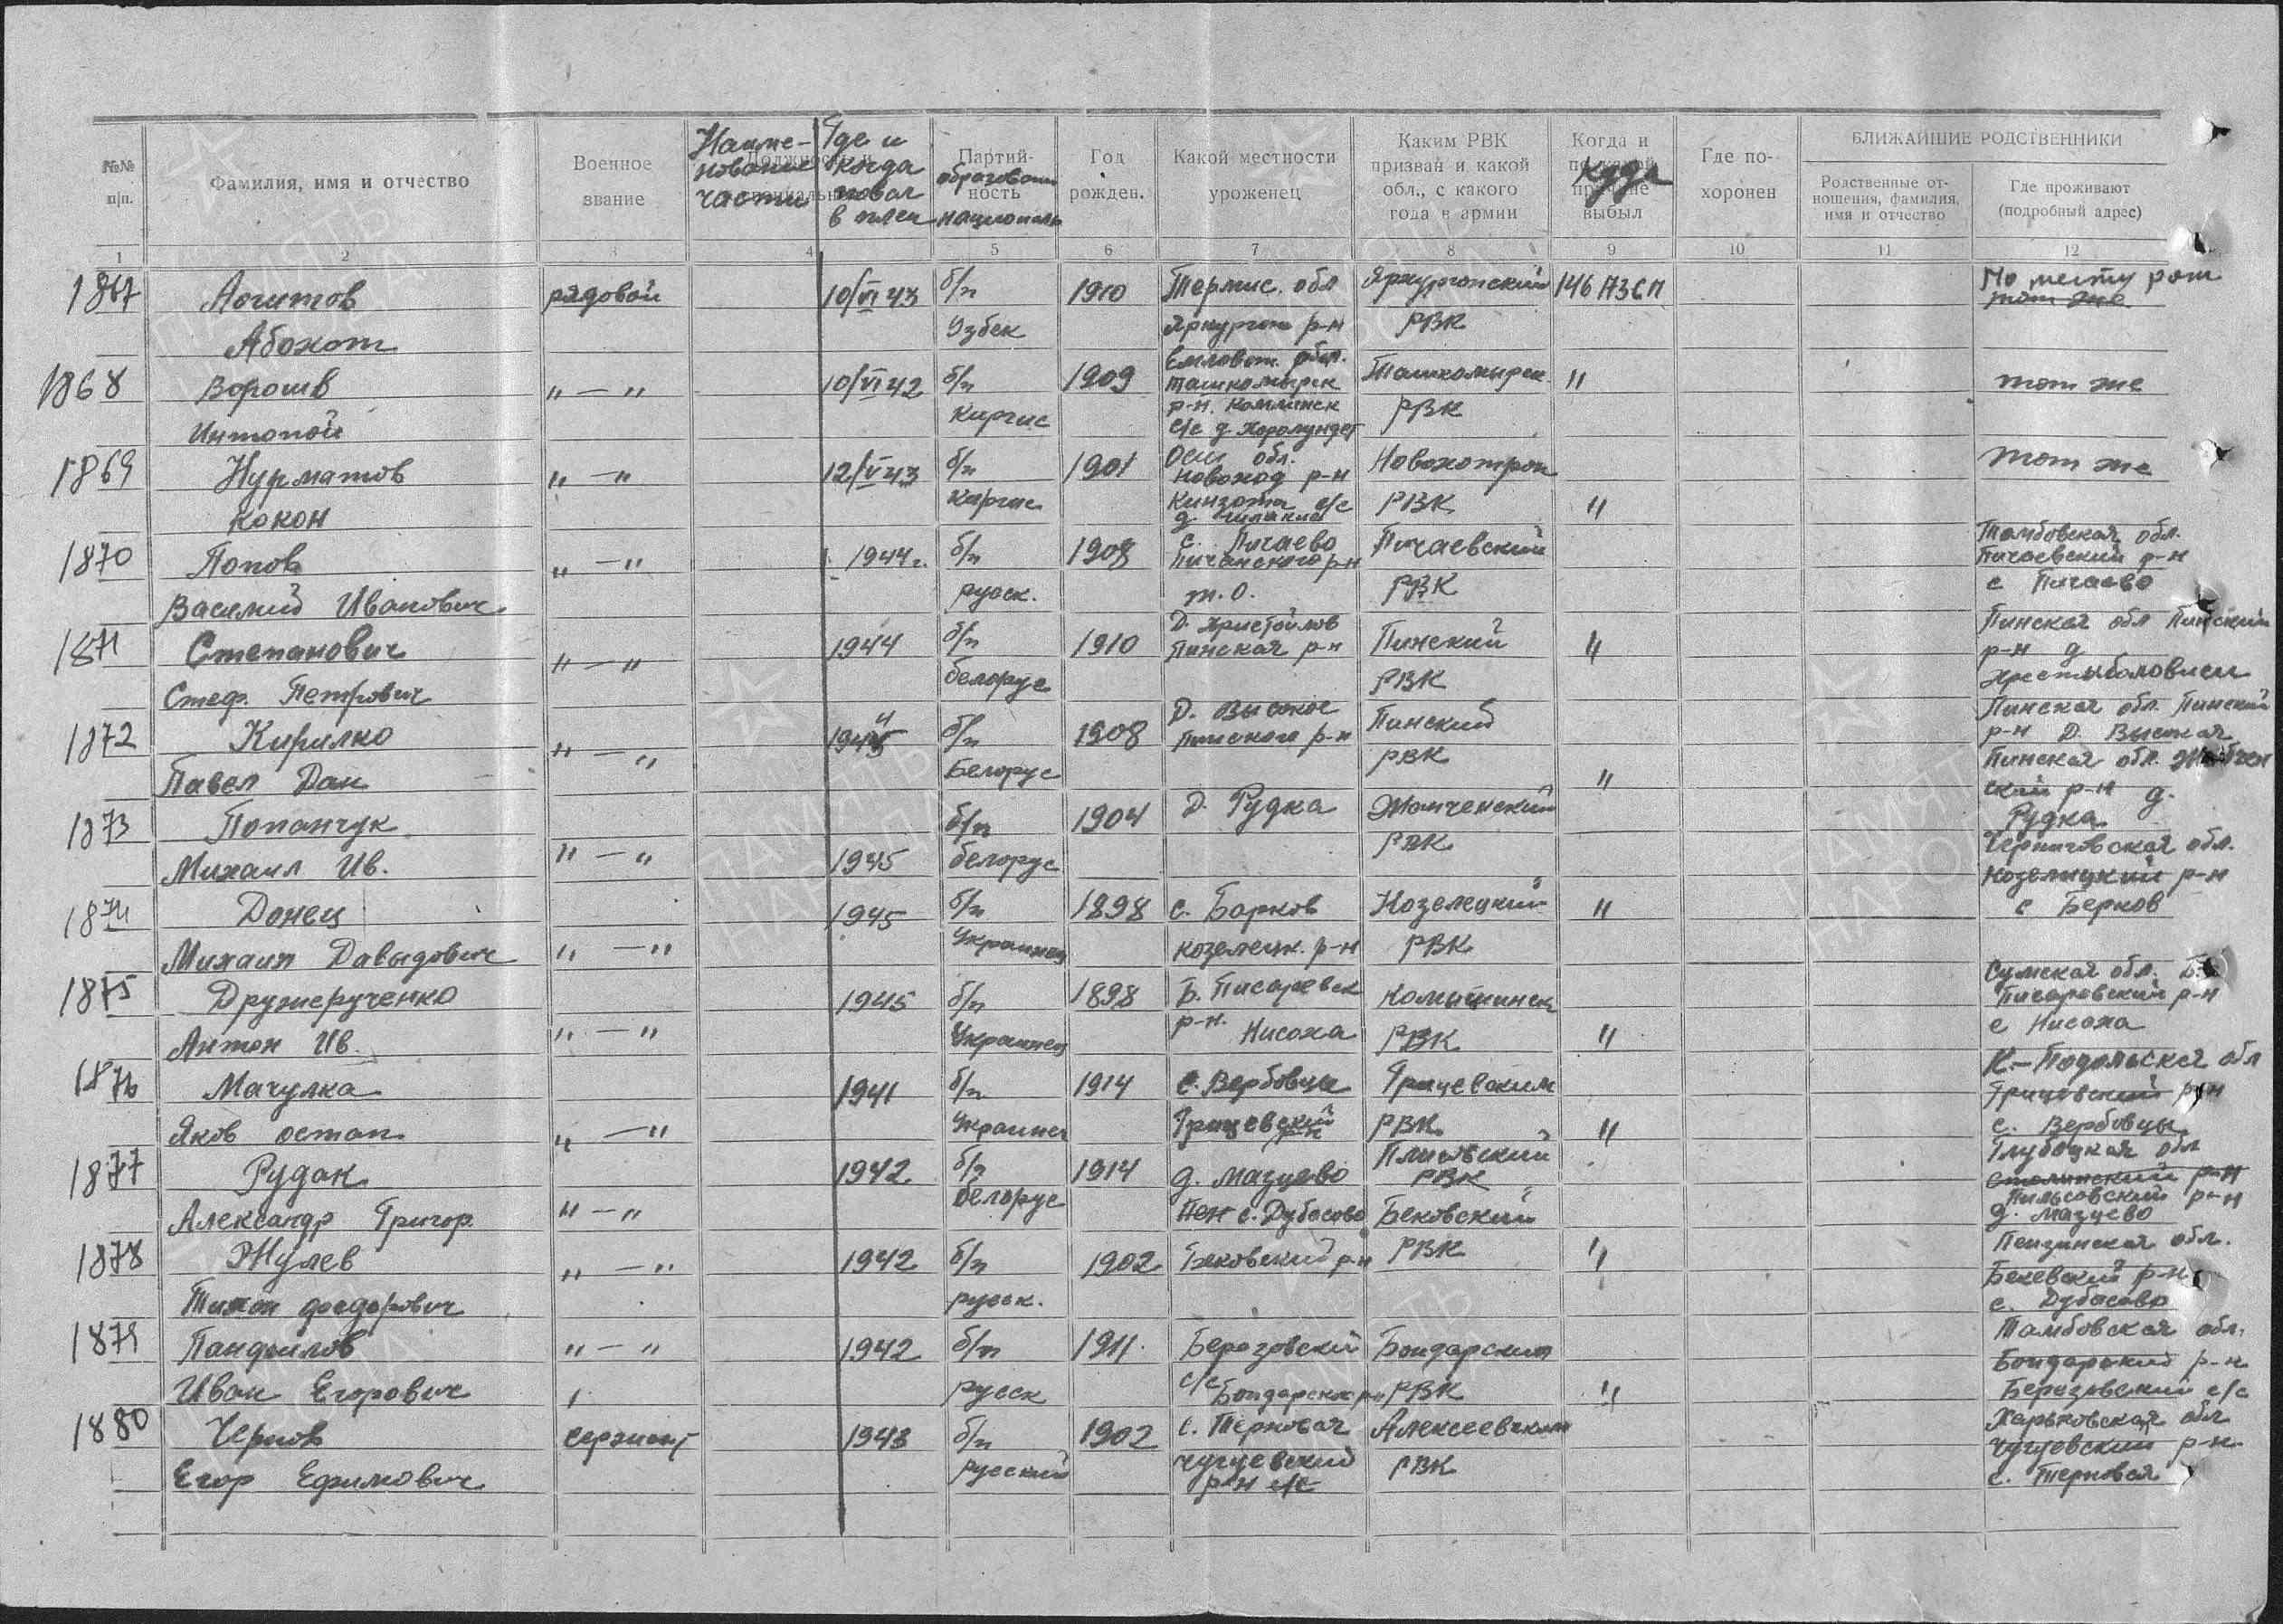 №№ п/п.
Фамилия, имя и отчество
Военное звание
Наименование части
Где и когда попал в плен
Партий-
образован
ность
националь
Год рожден.
Какой местности уроженец
Каким РВК призван и какой обл., с какого года в армии
Когда и
куда
выбыл
Где похоронен
БЛИЖАЙШИЕ РОДСТВЕННИКИ
Родственные отношения, фамилия, имя и отчество
Где проживают (подробный адрес)
1 2 3 4 5 6 7 8 9 10 11 12
1867 Аочитов рядовой 10/VI 43 б/п 1910 Термис. обл Яркургонский 146 АЗСП По месту рож
Абохот Узбек Яркургон р-н РВК
1868 Ворошв " — " 10/VI 42 б/п 1909 Ташкомырск Ташкомырск " тот же
Интопой Киргис р-н. РВК
1869 Нурматов " — " 12/VI 43 б/п 1901 Ош обл. Новохотрон тот же
Кокон Киргис Новоход р-н с/с РВК "
1870 Попов " — " 1944г. б/п 1908 с. Пичаево Пичаевский Тамбовская обл. Пичаевский р-н
Василий Иванович русск. Пичаевского р-н т.О. РВК с Пичаево
1871 Степанович " — " 1944 б/п 1910 Д. Христоилов Пинский " Пинская обл Пинский р-н д
Стеф. Петрович белорус Пинская р-н РВК
1872 Кирилко " — " 1944 б/п 1908 Д. Высокое Пинский Пинская обл. Пинский р-н Д. Высокая
Павел Дан Белорус Пинского р-н РВК "
1873 Попанчук б/п 1904 Д. Рудка Жабченский Пинская обл. Жабчен ский р-н д. Рудка
Михаил Ив. " — " 1945 белорус РВК
1874 Донец 1945 б/п 1898 с. Борков Козелецкий " Черниговская обл. Козелицкий р-н с Берков
Михаил Давыдович " — " Украинец козелецк. р-н РВК
1875 Дружерученко 1945 б/п 1898 Б. Писаревск Комышинск Сумская обл. Б. Писаревский р-н
Антон Ив. " — " Украинец р-н. Нисоха РВК " с Нисоха
1876 Мачулка 1941 б/п 1914 с. Вербовцы Грицевским К.-Подольская обл Грицевский р-н
Яков остап. " — " Украинец Грицевский р-н РВК " с. Вербовцы
1877 Рудак 1942 б/п 1914 д. Мазцево Плисовский РВК Глубоцкая обл
Александр Григор. " — " белорус р-н д. Мазцево
1878 Жулев " — " 1942 б/п 1902 Пен с. Дубасово Бековский р-н Бековский РВК " Пензинская обл.
Тихон Федорович русск. Бековский р-н с. Дубасово
1879 Панфилов " — " 1942 б/п 1911. Березовский Бондарским Тамбовская обл. Бондарский р-н
Иван Егорович русск с/с Бондарского рн РВК " Березовский с/с
1880 Чернов сержант 1943 б/п 1902 с. Терновая Алексеевским Харьковская обл
Егор Ефимович русский Чугуевский р-н с/с РВК Чугуевский р-н с. Терновая